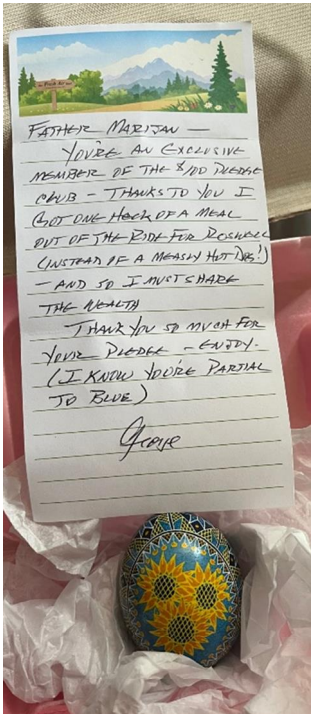 FATHER MARIJAN —
YOU'RE AN EXCLUSIVE
MEMBER OF THE $100 PLEDGE
CLUB – THANKS TO YOU I
GOT ONE HECK OF A MEAL
OUT OF THE RIDE FOR ROSWELL
(INSTEAD OF A MEASLY HOT DOG!)
– AND SO I MUST SHARE
THE WEALTH
THANK YOU SO MUCH FOR
YOUR PLEDGE – ENJOY.
(I KNOW YOU'RE PARTIAL
TO BLUE)